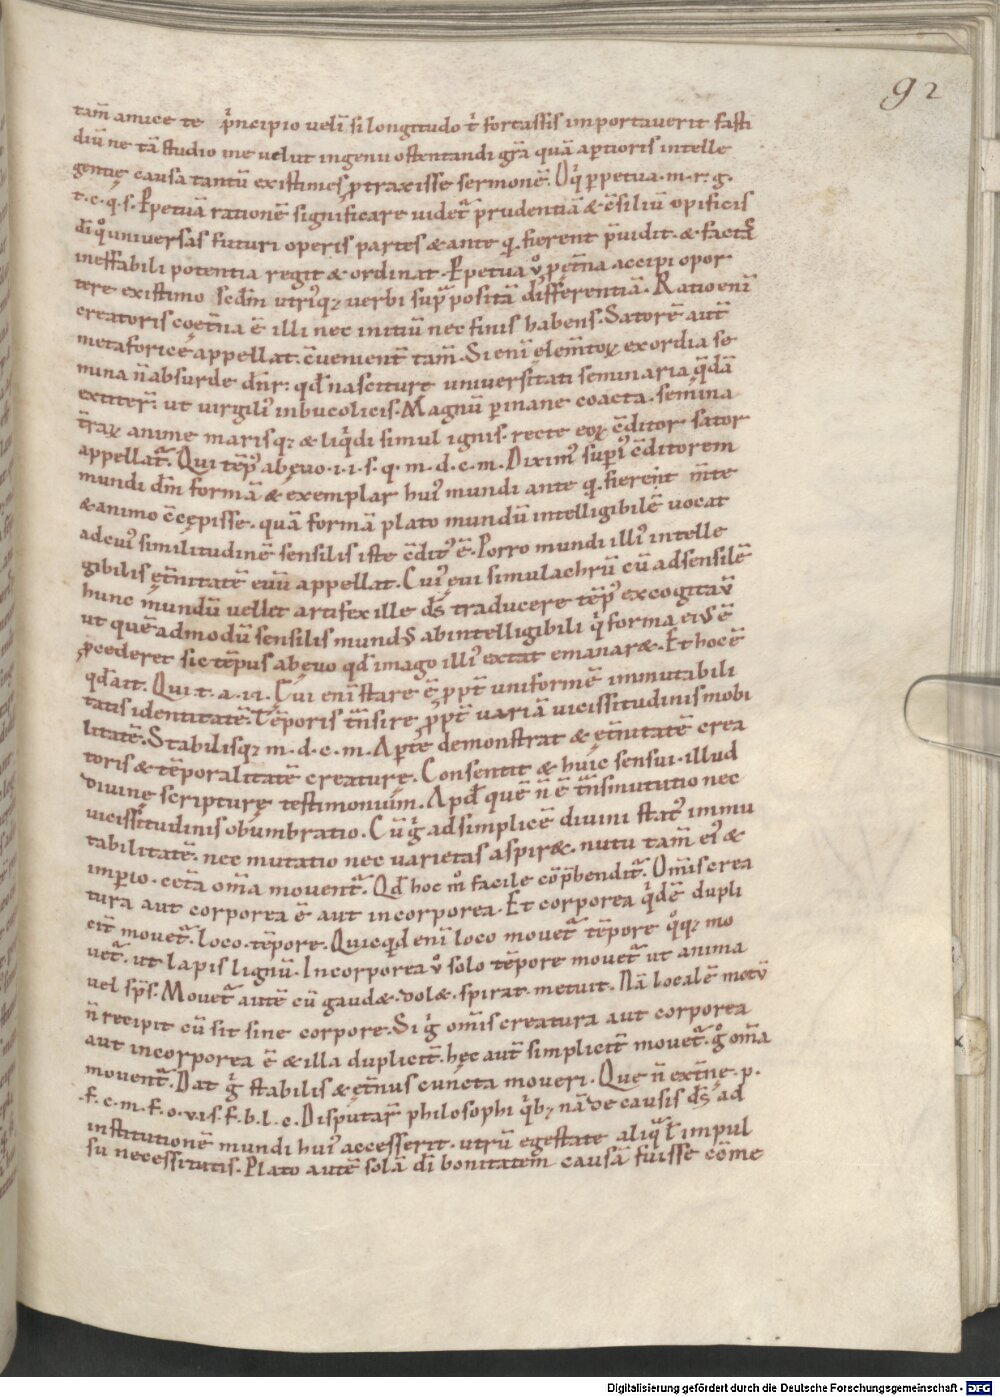 92
tam̄ amice te p̓ncipio velī si longitudo t̓ fortassis importaverit fasti
diū ne tā studio me velut ingenii ostentandi gr̄a quā ap̱tioris intelle
gentię causa tantū existimes ꝓtraxisse sermonē. Oq̓ p̱petua . m . r . g .
t . c . q . s . P̱petuā rationē significare videt᷑ prudentiā & c̄siliū opificis
dī q̊ universas futuri operis partes & ante q̄ fierent p̄vidit . & factas
ineffabili potentia regit & ordinat . P̱petua v̊ p̱ et̄na accipi opor
tere existimo sc̄dm̄ utriꝰq; verbi sup̄ positā differentiā . Ratio enī
creatoris coęt̄na ē illi nec initiū nec finis habens . Satorē aut̄
metaforicę appellat . c̄venient̄ tam̄ . Si enī elem̄toꝝ exordia se
mina n̄ absurde dn̄r : qd̄ nasciturę universitati seminaria q̄dā
extiter̄ . ut virgiliꝰ in bucolicis . Magnū p̱ inane coacta . semina
t̄raꝝ animę marisq; & liq̓di simul ignis . recte eoꝝ c̄ditor sator
appellat᷑ . Qui tēpꝰ ab ęvo . i . i . s . q . m . d . c . m . Diximꝰ supͥ c̄ditorem
mundi dm̄ formā & exemplar huiꝰ mundi ante q̄ fierent m̄te
& animo c̄cępisse . quā formā plato mundū intelligibilē vocat
ad cuiꝰ similitudinē sensilis iste c̄ditꝰ ē . Porro mundi illiꝰ intelle
gibilis ęt̄nitatē evū appellat . Cuiꝰ ęvi simulachrū cū ad sensilē
hunc mundū vellet artifex ille ds̄ traducere tēpꝰ excogitav̄
ut quēadmodū sensilis mundꝰ ab intelligibili q̓ forma eiꝰ ē
ꝓcederet sic tēpus ab ęvo qd̄ imago illiꝰ extat emanar& . Et hoc ē
qd̄ ait . Qui t . a . i . i . Ęvi enī stare ē ꝓpt̄ uniformē immutabili
tatis identitatē . Tēporis t̄nsire ꝓpt̄ variā vicissitudinis mobi
litatē . Stabilisq; m . d . c . m . Ap̱te demonstrat & ęt̄nitatē crea
toris & tēporalitatē creaturę . Consentit & huic sensui . illud
divinę scripturę testimonium . Apd̄ quē n̄ ē t̄nsmutatio nec
vicissitudinis obumbratio . Cū g̓ ad simplicē divini statꝰ immu
tabilitatē . nec mutatio nec varietas aspir& . nutu tam̄ eiꝰ &
imp̱io . cet̄a om̄a movent᷑ . Qd̄ hoc m̊ facile cōp̄hendit᷑ . Om̄is crea
tura aut corporea ē aut incorporea . Et corporea q̓dē dupli
cit̄ movet᷑ . loco . tēpore . Quicqd̄ enī loco movet᷑ tēpore q̊q; mo
vet᷑ . ut lapis lignū . Incorporea v̊ solo tēpore movet᷑ ut anima
vel sp̄s . Movet᷑ autē cū gaud& . dol& . sperat . metuit . Nā localē motū
n̄ recipit cū sit sine corpore . Si g̓ om̄is creatura aut corporea
aut incorporea ē & illa duplicit̄ . hęc aut̄ simplicit̄ movet᷑ . g̊ om̄a
movent᷑ . Dat g̓ stabilis & ęt̄nus cuncta moveri . Quę n̄ ext̄nę . p .
f . c . m . f . o . v . i s . f . b . l . c . Disputar̄ philosophi q̓b; nā de causis ds̄ ad
institutionē mundi huiꝰ accesserit . utrū egestate aliq̄ l̄ impul
su necessitatis . Plato autē solā dī bonitatem causā fuisse cōme
Digitalisierung gefördert durch die Deutsche Forschungsgemeinschaft - DFG